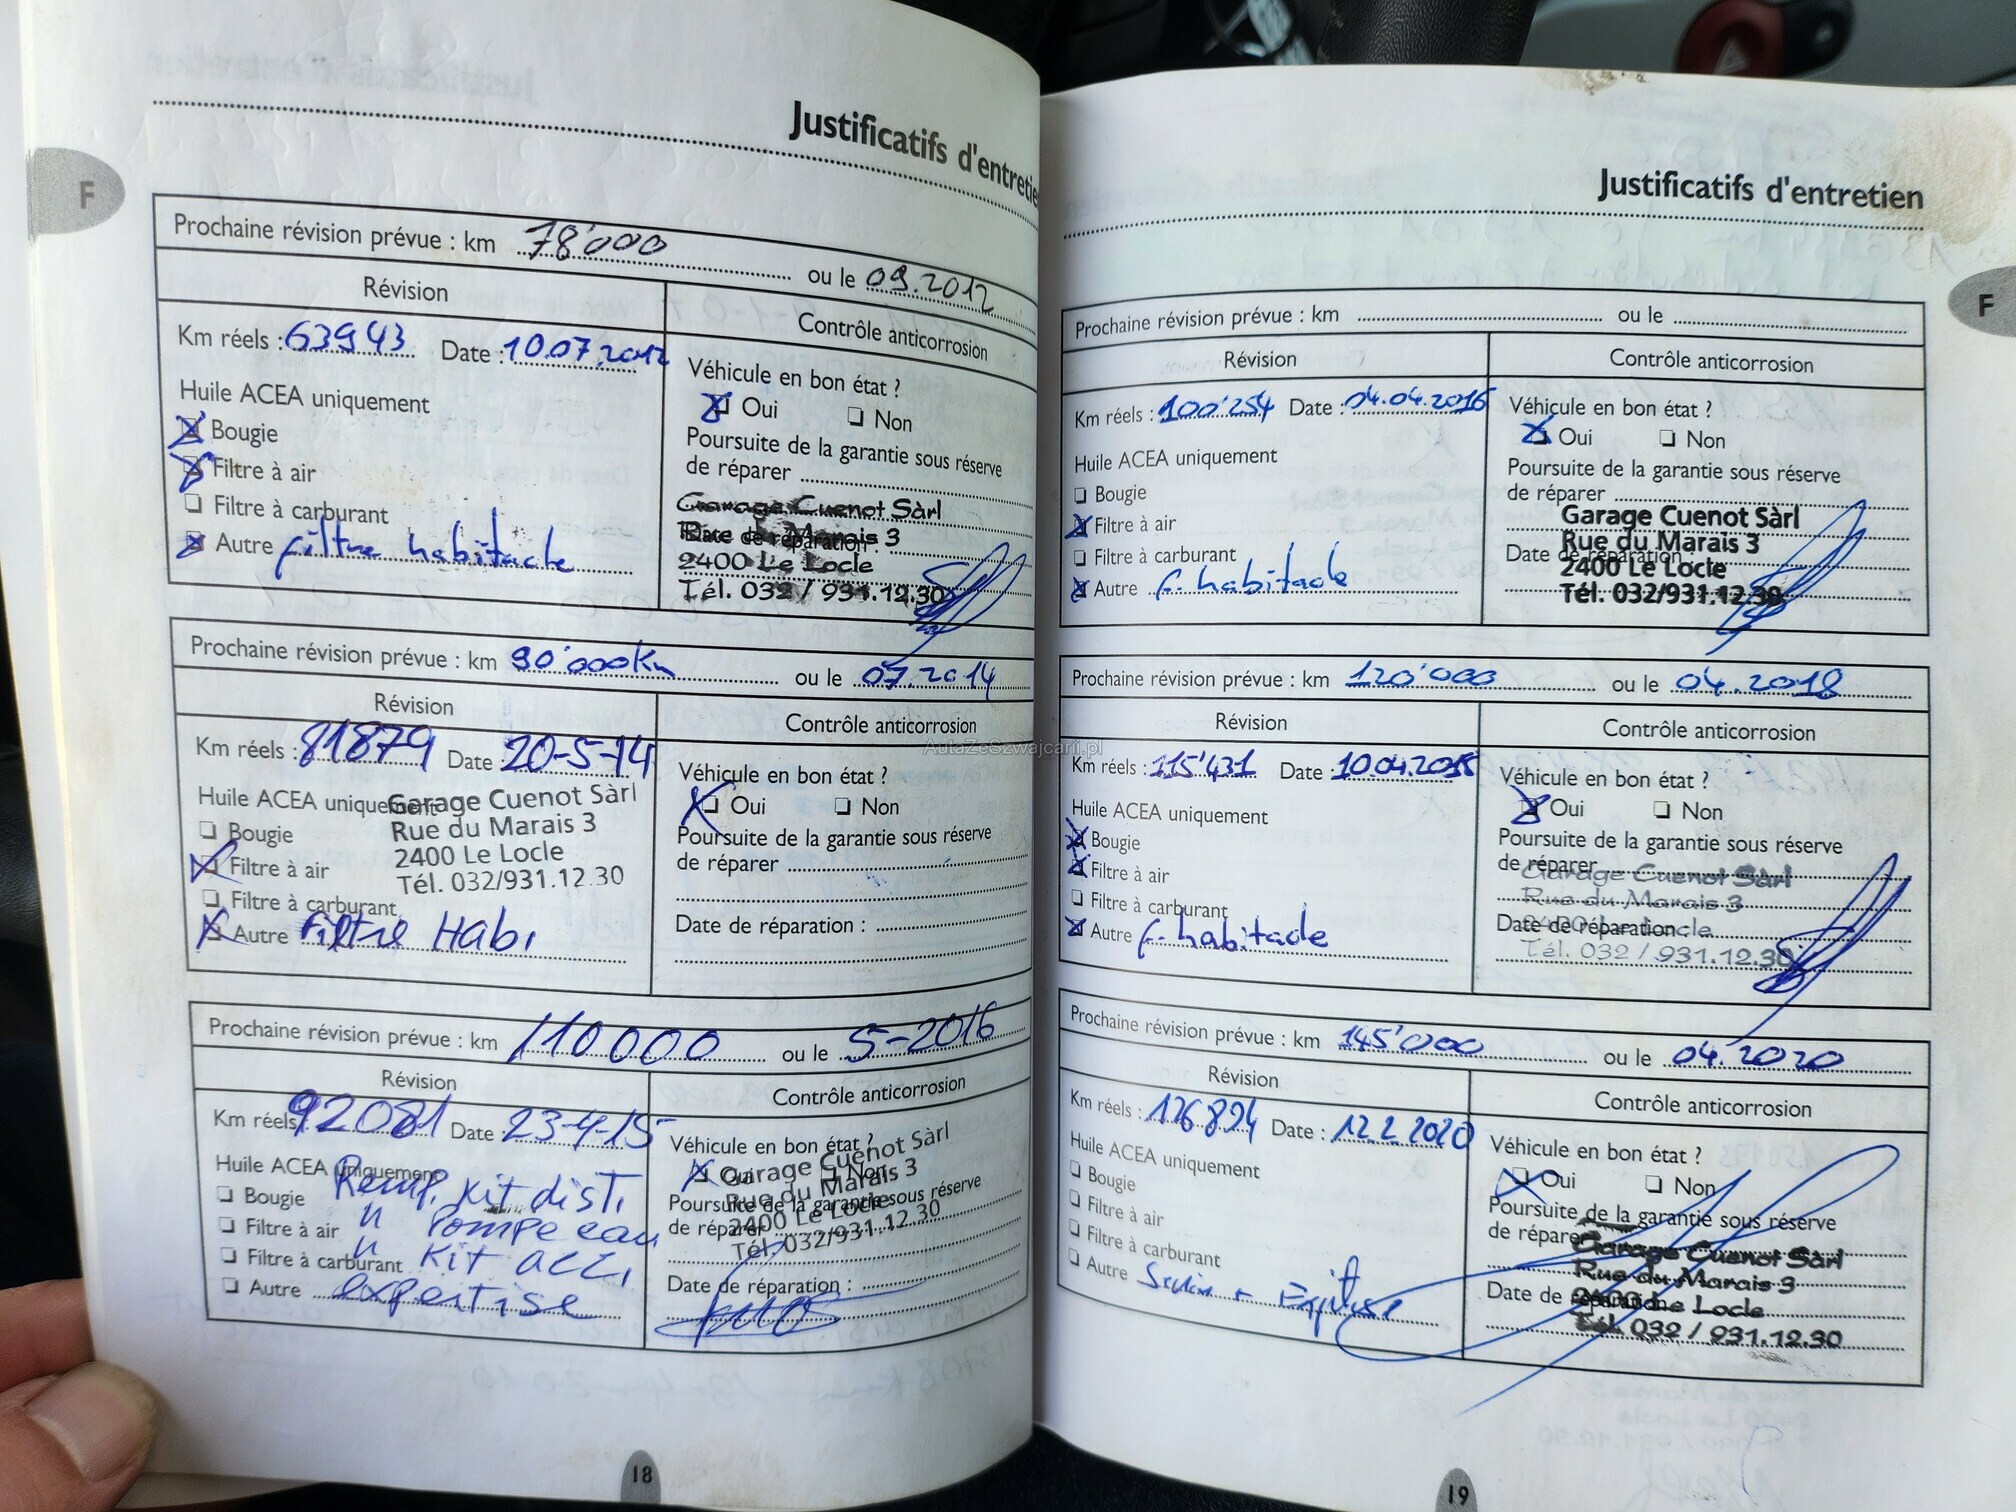 Justificatifs d'entretie
F
Prochaine révision prévue : km 78'000 ou le 09.2012
Révision
Contrôle anticorrosion
Km réels : 63943 Date : 10.07.2012
Huile ACEA uniquement
Bougie
Filtre à air
Filtre à carburant
Autre filtre habitacle
Véhicule en bon état ?
Oui Non
Poursuite de la garantie sous réserve
de réparer
Garage Cuenot Sàrl
Rue du Marais 3
Date de réparation :
2400 Le Locle
Tél. 032 / 931.12.30
Prochaine révision prévue : km 90'000 Km ou le 07.2014
Révision
Contrôle anticorrosion
Km réels : 81879 Date : 20-5-14
Huile ACEA uniquement
Garage Cuenot Sàrl
Rue du Marais 3
2400 Le Locle
Tél. 032/931.12.30
Bougie
Filtre à air
Filtre à carburant
Autre filtre Habi
Véhicule en bon état ?
Oui Non
Poursuite de la garantie sous réserve
de réparer
Date de réparation :
Prochaine révision prévue : km 110000 ou le 5-2016
Révision
Contrôle anticorrosion
Km réels : 92081 Date : 23-4-15
Huile ACEA uniquement
Remp. Kit dist.
Bougie
" Pompe eau
Filtre à air
" Kit acc.
Filtre à carburant
Autre expertise
Véhicule en bon état ?
Oui Non
Garage Cuenot Sàrl
Rue du Marais 3
Poursuite de la garantie sous réserve
de réparer
2400 Le Locle
Tél. 032/931.12.30
Date de réparation :
18
Justificatifs d'entretien
F
Prochaine révision prévue : km ou le
Révision
Contrôle anticorrosion
Km réels : 100'254 Date : 04.04.2016
Huile ACEA uniquement
Bougie
Filtre à air
Filtre à carburant
Autre f. habitacle
Véhicule en bon état ?
Oui Non
Poursuite de la garantie sous réserve
de réparer
Garage Cuenot Sàrl
Rue du Marais 3
Date de réparation
2400 Le Locle
Tél. 032/931.12.30
Prochaine révision prévue : km 120'000 ou le 04.2018
Révision
Contrôle anticorrosion
Km réels : 115'431 Date 10.04.2018
Huile ACEA uniquement
Bougie
Filtre à air
Filtre à carburant
Autre f. habitacle
Véhicule en bon état ?
Oui Non
Poursuite de la garantie sous réserve
de réparer
Garage Cuenot Sàrl
Rue du Marais 3
Date de réparation :
2400 Le Locle
Tél. 032 / 931.12.30
Prochaine révision prévue : km 145'000 ou le 04.2020
Révision
Contrôle anticorrosion
Km réels : 126894 Date : 12.2.2020
Huile ACEA uniquement
Bougie
Filtre à air
Filtre à carburant
Autre
Véhicule en bon état ?
Oui Non
Poursuite de la garantie sous réserve
de réparer
Garage Cuenot Sàrl
Rue du Marais 3
Date de réparation
2400 Le Locle
Tél. 032 / 931.12.30
19
AutaZeSzwajcarii.pl